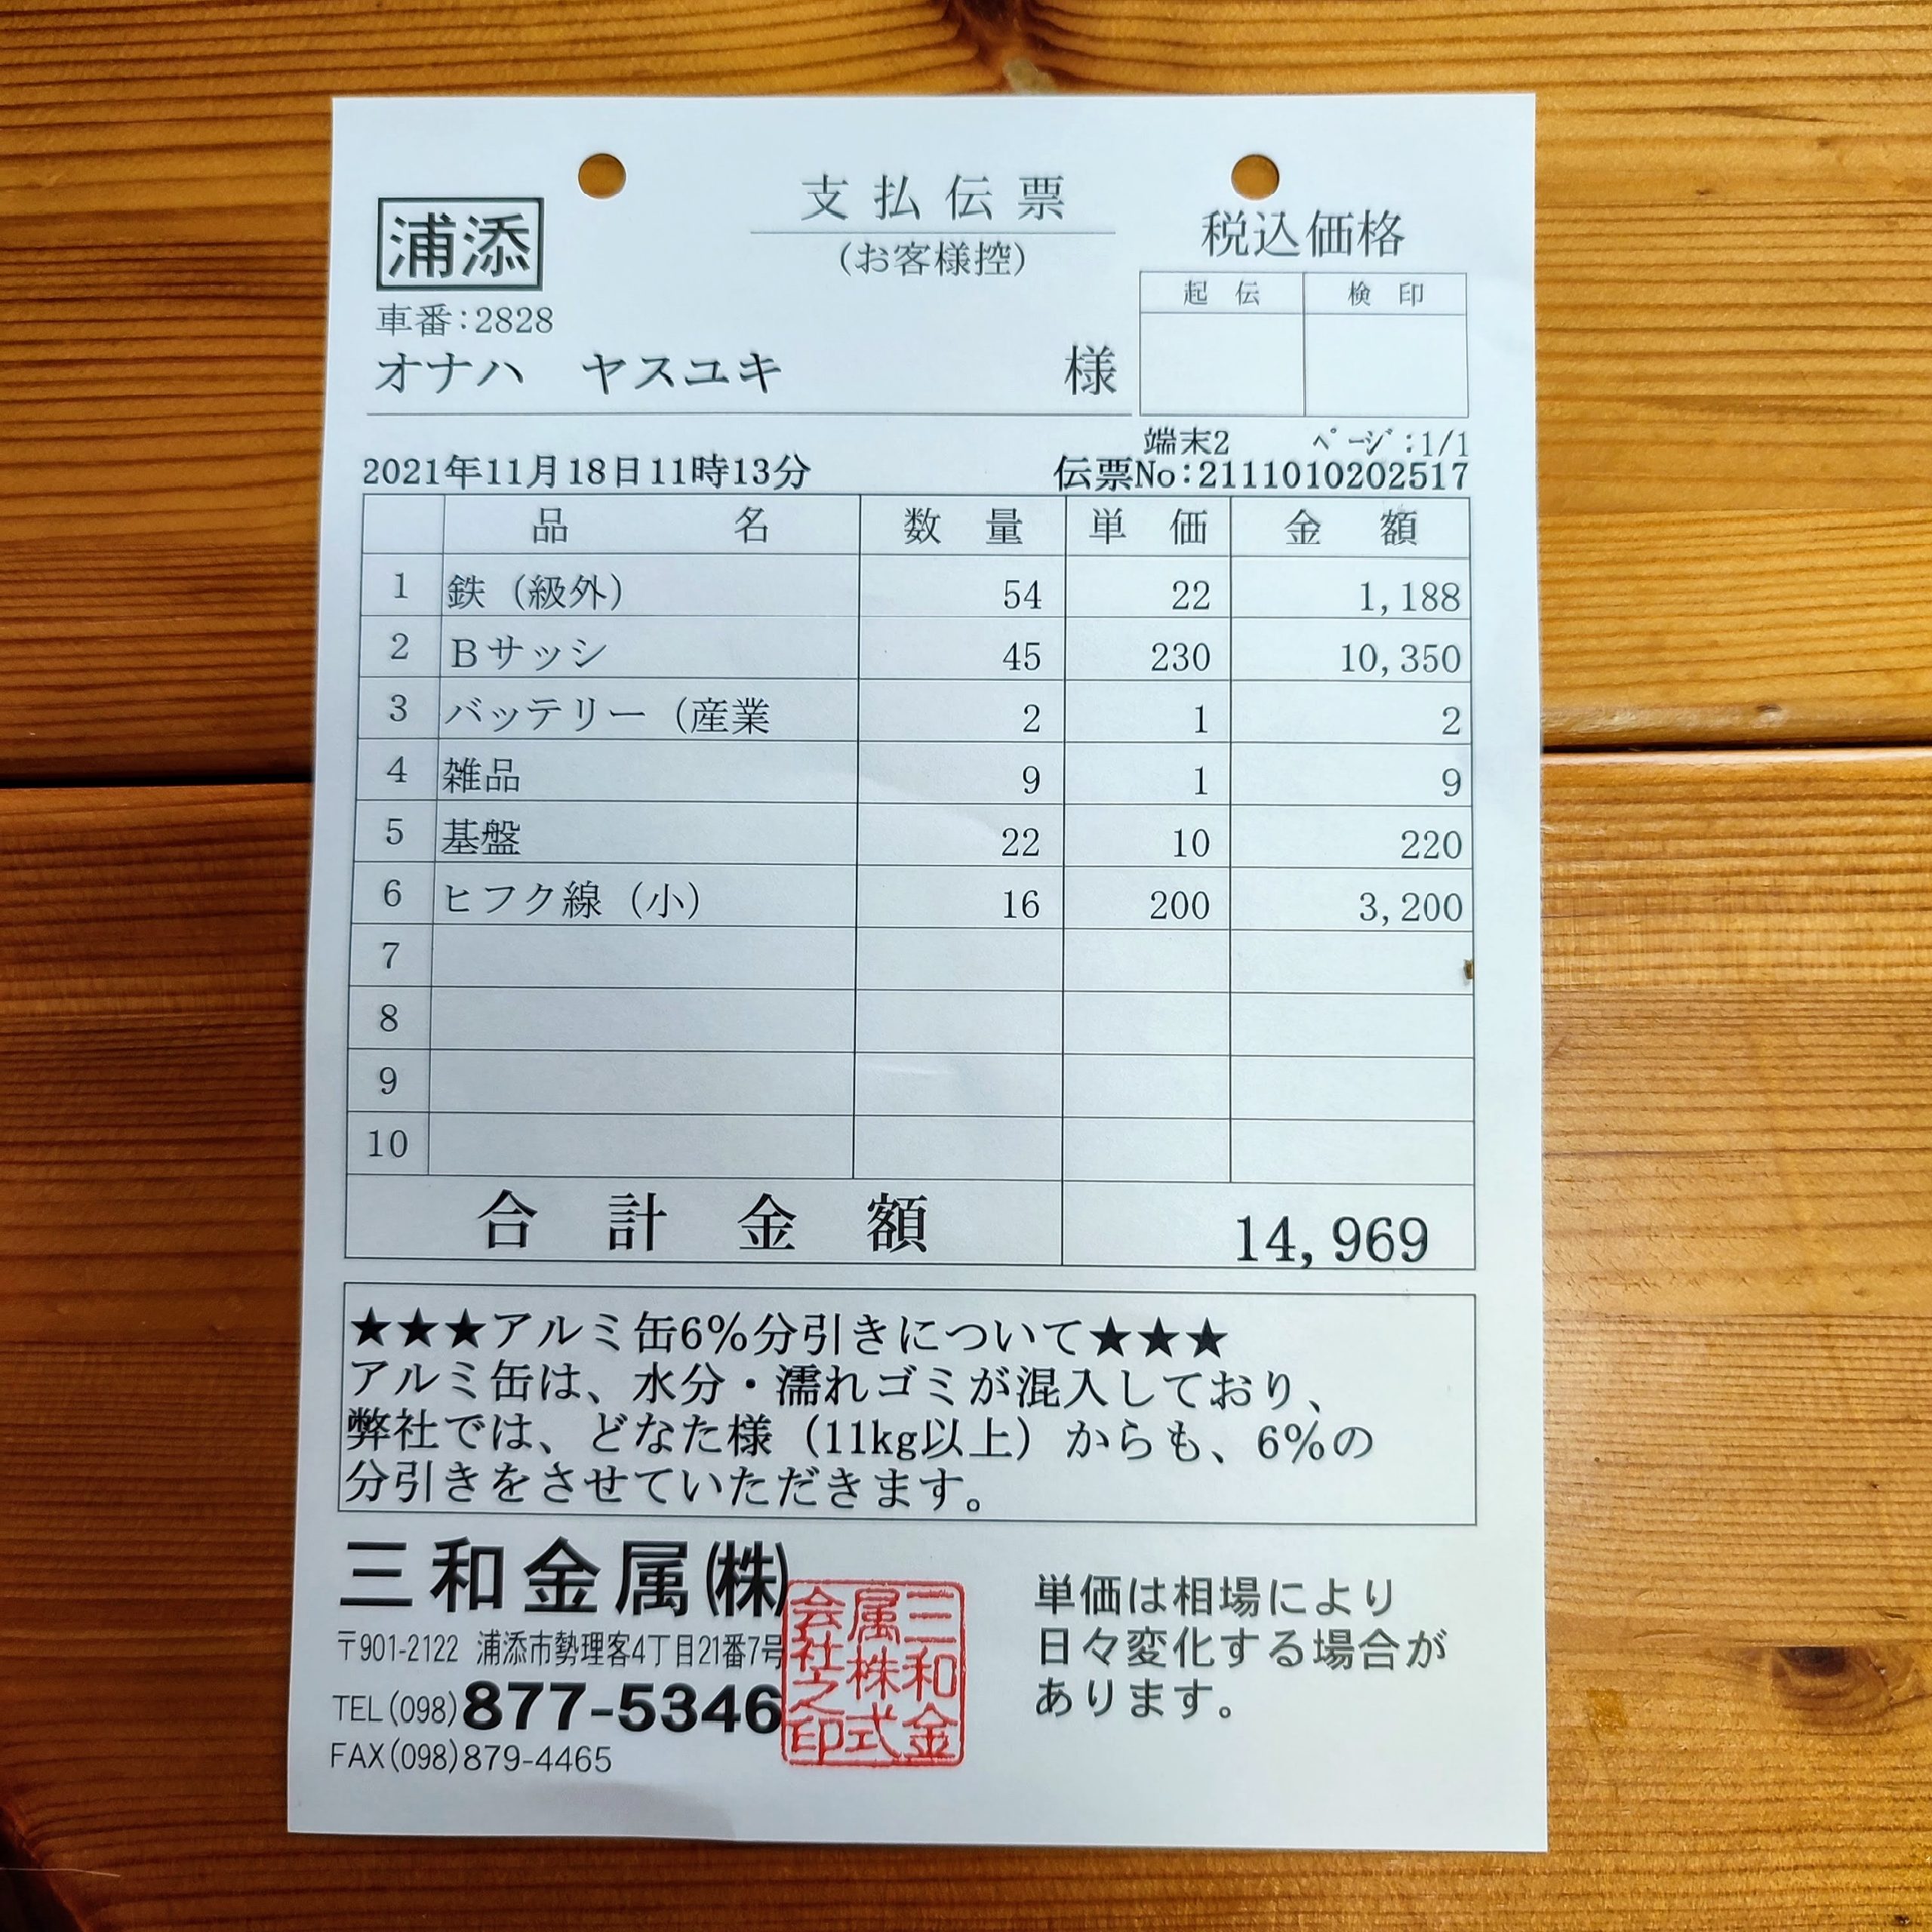 支払伝票
(お客様控)
税込価格
浦添
起伝 検印
車番:2828
オナハ ヤスユキ 様
端末2 ページ:1/1
2021年11月18日11時13分 伝票No:2111010202517
品名 数量 単価 金額
1 鉄（級外） 54 22 1,188
2 Bサッシ 45 230 10,350
3 バッテリー（産業 2 1 2
4 雑品 9 1 9
5 基盤 22 10 220
6 ヒフク線（小） 16 200 3,200
7
8
9
10
合計金額 14,969
★★★アルミ缶6%分引きについて★★★
アルミ缶は、水分・濡れゴミが混入しており、
弊社では、どなた様（11kg以上）からも、6%の
分引きをさせていただきます。
三和金属㈱
〒901-2122 浦添市勢理客4丁目21番7号
TEL(098)877-5346
FAX(098)879-4465
三和金
属株式
会社之印
単価は相場により
日々変化する場合が
あります。